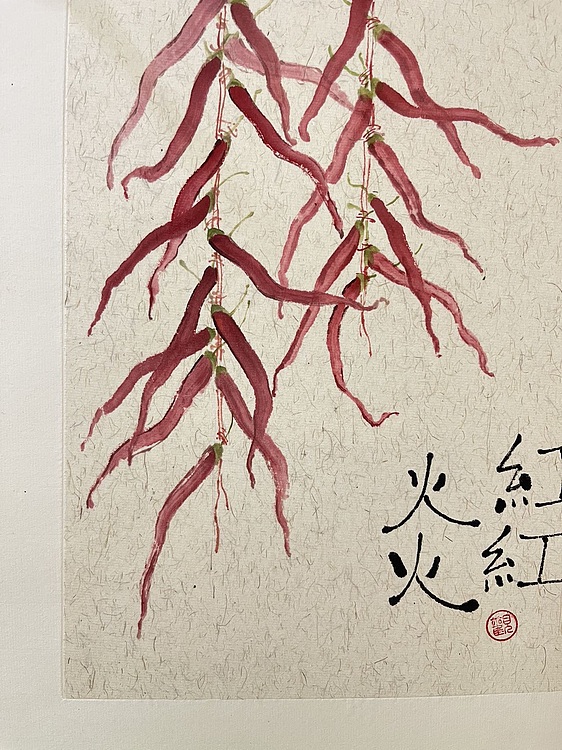 紅紅
火火